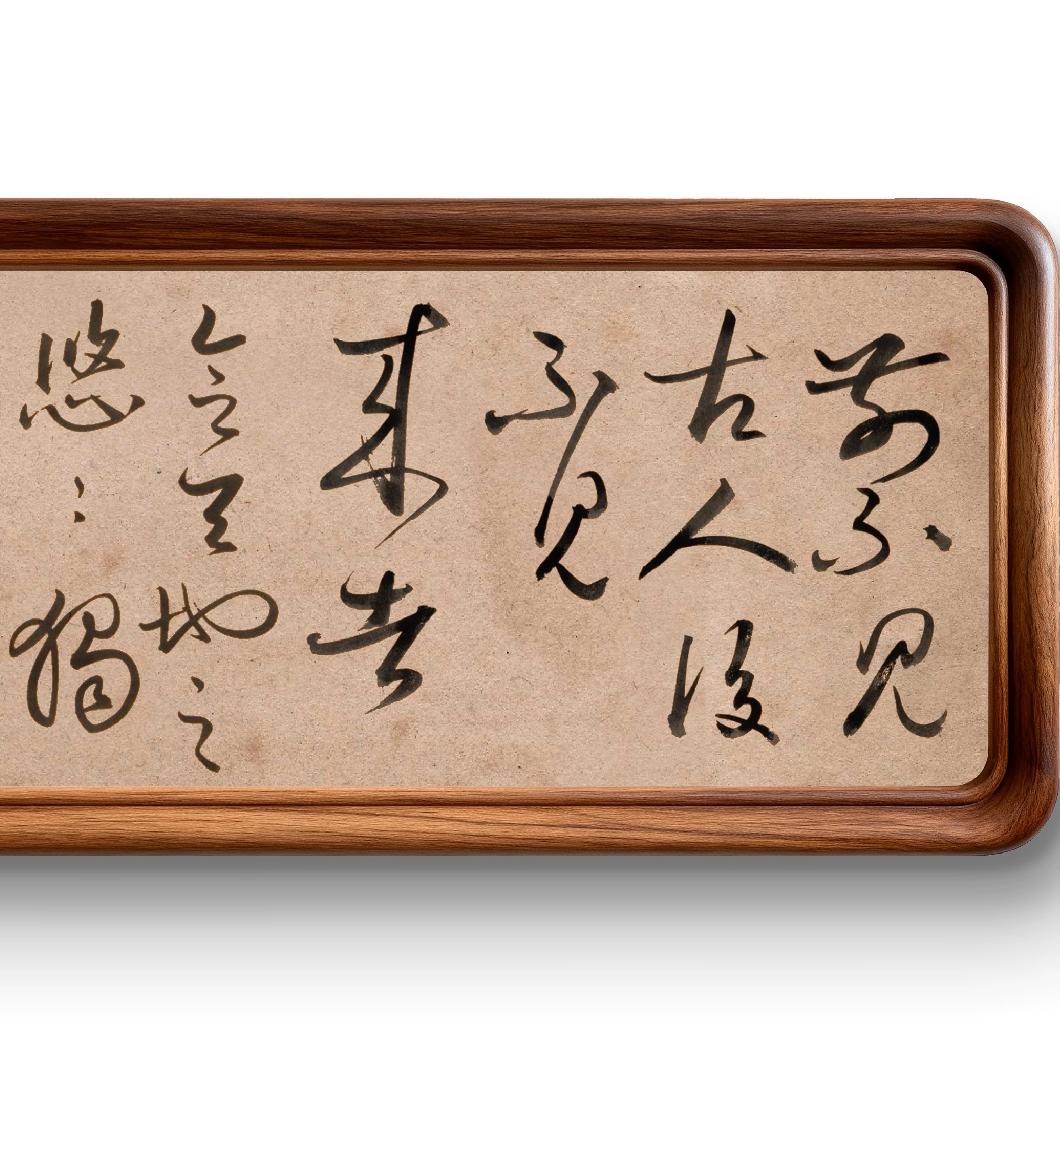 前不見
古人後
不見
來者
念天地之
悠悠獨